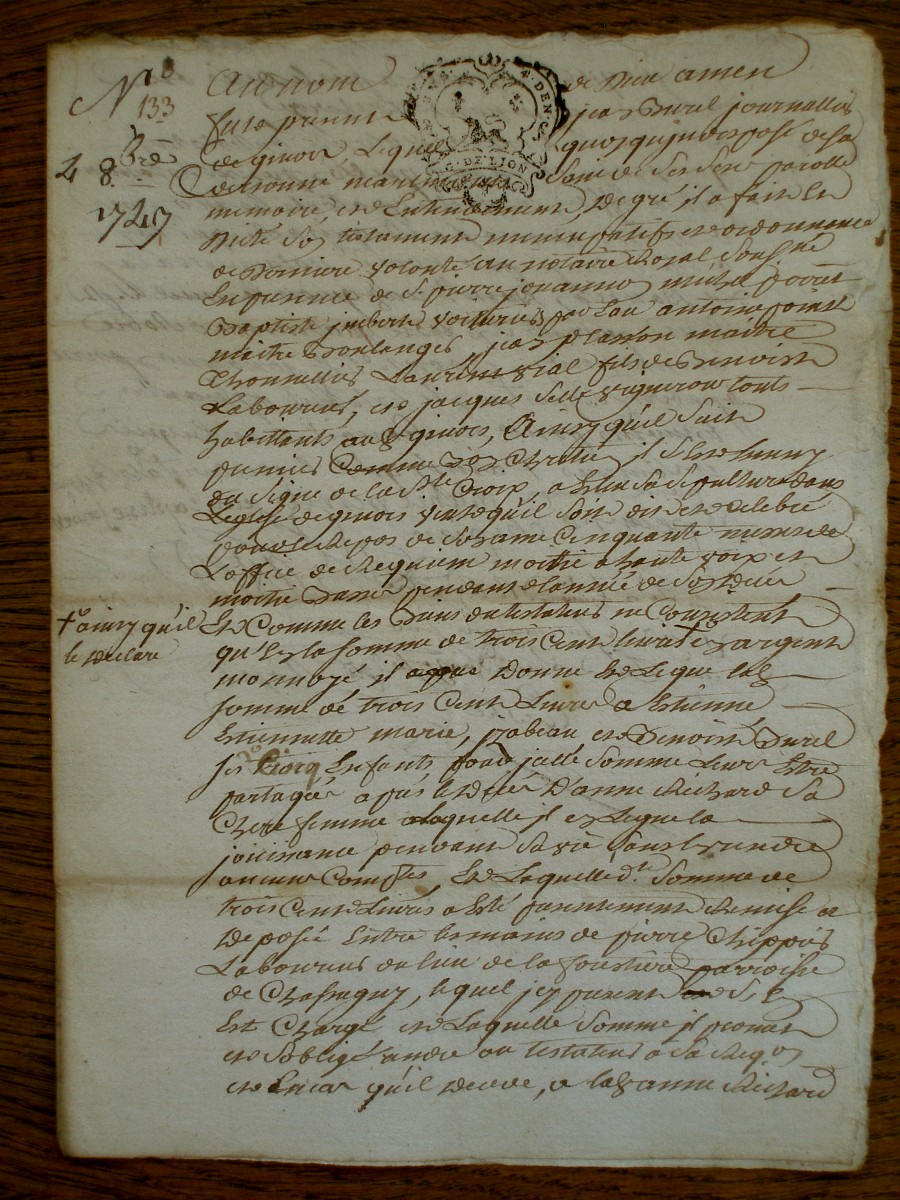 No
133
8bre
4 8.
1747
Au nom de Dieu amen
fut present jean Durel journallier
de givors, Lequel quoyqu'indisposé de sa
personne sain de ses sens parolle
memoire, et Entendement, De gré il a fait Et
Dicté son testament nuncupatif et ordonnance
de Derniere volonté au notaire Royal Sousné
En presence de Sr pierre jouanno, michel
Baptiste jmbert voituriers par Eau antoine
maitre Boulanger, jean plasson maitre
thonnellier Laurent vial fils de Benoist
Laboureur, et jacques vigneron touts
habittants a givors, Ainsy qu'il Soit
premier Comme bon Chretien il s'est muny
du Signe de la Ste Croix, a Eslu Sa Sepulture dans
L'église de givors veut qu'il Soit dit et celebré
pour le Repos de Son ame Cinquante messes de
L'office de Requiem moitié a haute voix et
moitié Basse pendant L'année de Son Decés
Et Comme les Biens du testateur ne Consistent
+ ainsy qu'il
le Declare
qu'En la Somme de trois Cent livres D'argent
monnoyé il Donne Et Legue lad
Somme de trois Cent Livres a Estienne
Estiennette marie, jzabeau et Benoist Durel
ses Cinq Enfants pour jcelle Somme Leur Estre
partagée apres le Decés D'anne Richard Sa
Chere femme a laquelle il en Legue la
jouissance pendant Sa vie Sans En rendre
aucuns Comptes Et Laquelle de. Somme de
trois Cent Livres a Esté presentement Remise et
Deposée Entre les mains de pierre
Laboureur du lieu de la parroisse
de Chassagny, lequel jcy present S'en
Est Chargé et Laquelle Somme il promet
et S'oblige Rendre au testateur a Sa Requon
et En cas qu'il Decede, a lad anne Richard
G. DE LION